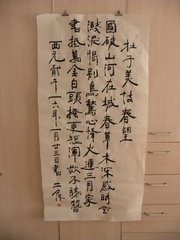 杜子美春望
國破山河在城春草木深感時花
濺淚恨別鳥驚心烽火連三月家
書抵萬金白頭搔更短渾欲不勝簪
西元貳千一六年一月廿三日書